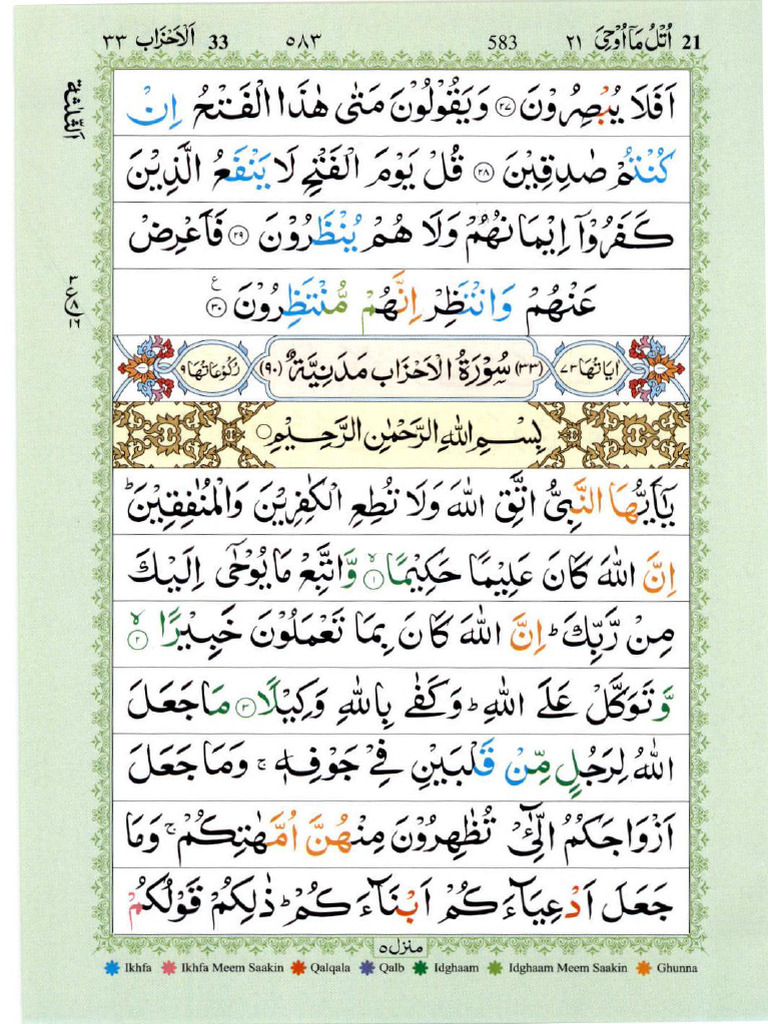 21 اُتْلُ مَآ اُوْحِیَ ٢١ 583 ٥٨٣ 33 اَلْاَحْزَاب ٣٣
الثلثة
اَفَلَا یُبْصِرُوْنَ ﴿٢٧﴾ وَیَقُوْلُوْنَ مَتٰی هٰذَا الْفَتْحُ اِنْ
كُنْتُمْ صٰدِقِیْنَ ﴿٢٨﴾ قُلْ یَوْمَ الْفَتْحِ لَا یَنْفَعُ الَّذِیْنَ
كَفَرُوْۤا اِیْمَانُهُمْ وَلَا هُمْ یُنْظَرُوْنَ ﴿٢٩﴾ فَاَعْرِضْ
عَنْهُمْ وَانْتَظِرْ اِنَّهُمْ مُّنْتَظِرُوْنَ ﴿٣٠﴾ ع
اٰیَاتُهَا ٧٣ (٣٣) سُوْرَةُ الْاَحْزَابِ مَدَنِیَّةٌ (٩٠) رُكُوْعَاتُهَا ٩
بِسْمِ اللّٰهِ الرَّحْمٰنِ الرَّحِیْمِ
یٰۤاَیُّهَا النَّبِیُّ اتَّقِ اللّٰهَ وَلَا تُطِعِ الْكٰفِرِیْنَ وَالْمُنٰفِقِیْنَ ؕ
اِنَّ اللّٰهَ كَانَ عَلِیْمًا حَكِیْمًا ﴿١﴾ وَّاتَّبِعْ مَا یُوْحٰۤی اِلَیْكَ
مِنْ رَّبِّكَ ؕ اِنَّ اللّٰهَ كَانَ بِمَا تَعْمَلُوْنَ خَبِیْرًا ﴿٢﴾
وَّتَوَكَّلْ عَلَی اللّٰهِ ؕ وَكَفٰی بِاللّٰهِ وَكِیْلًا ﴿٣﴾ مَا جَعَلَ
اللّٰهُ لِرَجُلٍ مِّنْ قَلْبَیْنِ فِیْ جَوْفِهٖ ۚ وَمَا جَعَلَ
اَزْوَاجَكُمُ الّٰٓـِٔیْ تُظٰهِرُوْنَ مِنْهُنَّ اُمَّهٰتِكُمْ ۚ وَمَا
جَعَلَ اَدْعِیَآءَكُمْ اَبْنَآءَكُمْ ؕ ذٰلِكُمْ قَوْلُكُمْ
منزل ٥
Ikhfa Ikhfa Meem Saakin Qalqala Qalb Idghaam Idghaam Meem Saakin Ghunna